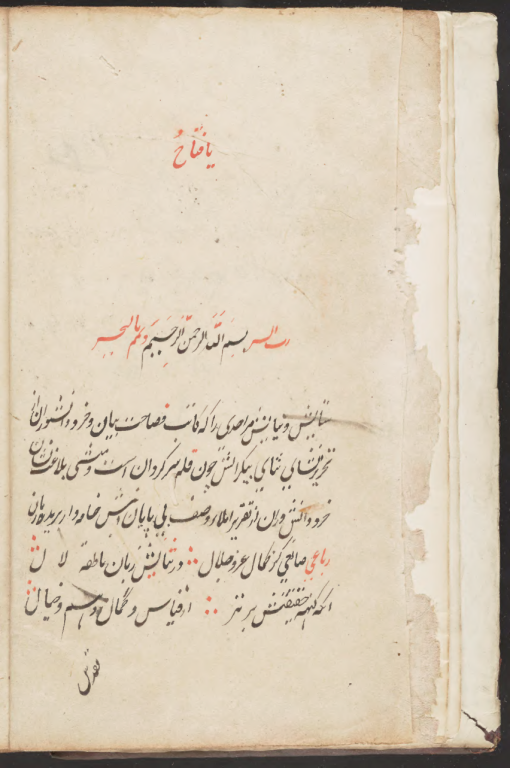 یا فتاح
رب یسر بسم الله الرحمن الرحیم و تمم بالخیر
ستایش و نیایش مر احدی را که کاتب فصاحت بیان و خرد دانشوران از
تحریر ثنای بیکرانش چون قلم سر گردان است و منشی بلاغت نشان
خرد دانش وران از تقریر املاء وصف بی پایانش خامه وار بریده زبان
رباعی صانعی کز کمال عز و جلال در ثنایش زبان ناطقه لال
آنکه کنه حقیقتش برتر از قیاس و گمان و وهم و خیال
مقدس